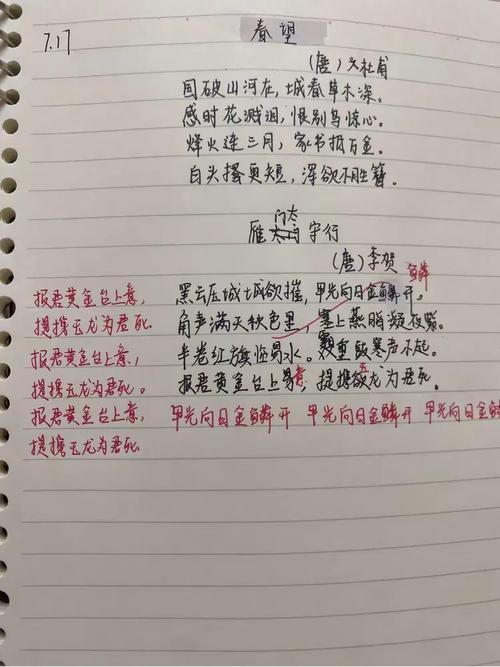 7.17
春望
(唐)杜甫
国破山河在,城春草木深。
感时花溅泪,恨别鸟惊心。
烽火连三月,家书抵万金。
白头搔更短,浑欲不胜簪。
雁门太守行
(唐)李贺
鳞
黑云压城城欲摧,甲光向日金鳞开。
角声满天秋色里,塞上燕脂凝夜紫。
半卷红旗临易水。霜重鼓寒声不起。
报君黄金台上意,提携玉龙为君死。
报君黄金台上意,
提携玉龙为君死.
报君黄金台上意,
提携玉龙为君死。
报君黄金台上意,
提携玉龙为君死.
甲光向日金鳞开 甲光向日金鳞开 甲光向日金鳞